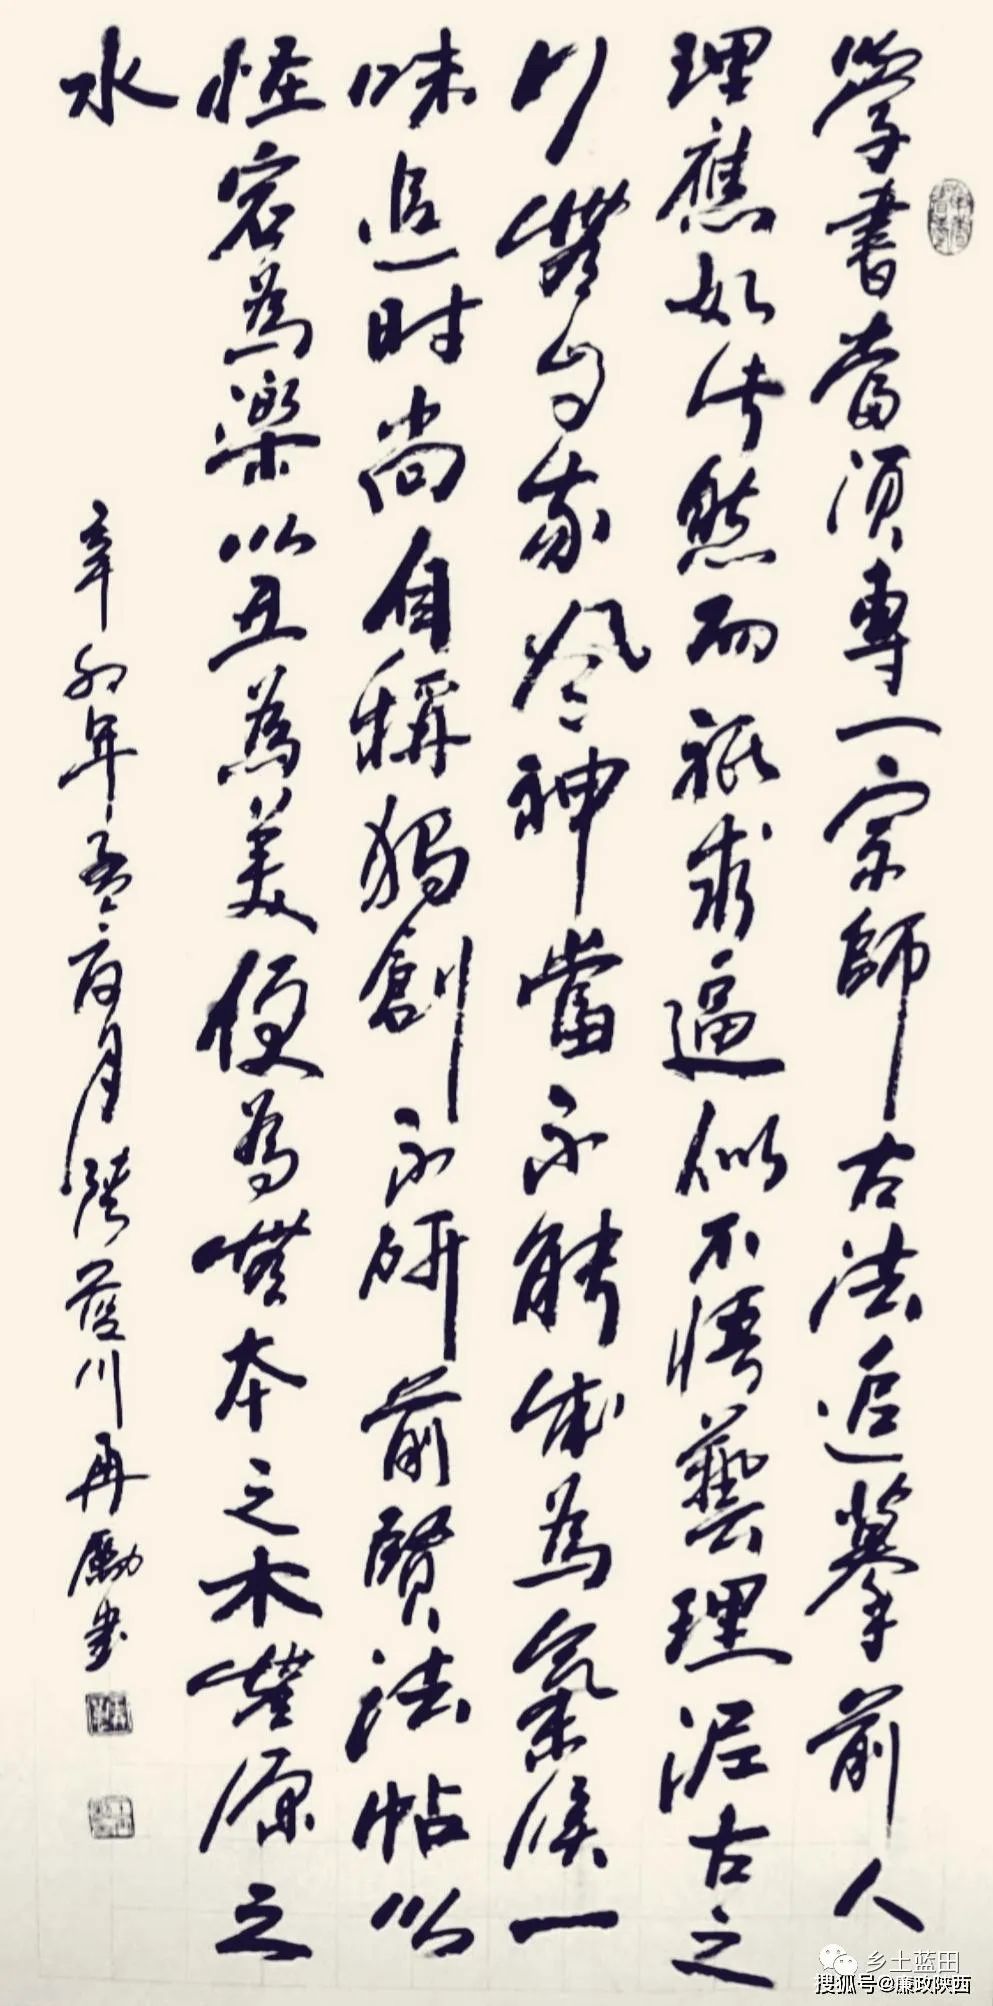 學書當須專一宗師古法追摹前人
理應如此然而祇求逼似不悟藝理泥古之
以無自家風神當不能成為氣候一
味追時尚自稱獨創不研前賢法帖以
怪宕為樂以丑為美便為無本之木無源之
水
辛卯年孟夏月 藍川再勵書
乡土蓝田
搜狐号@廉政陕西